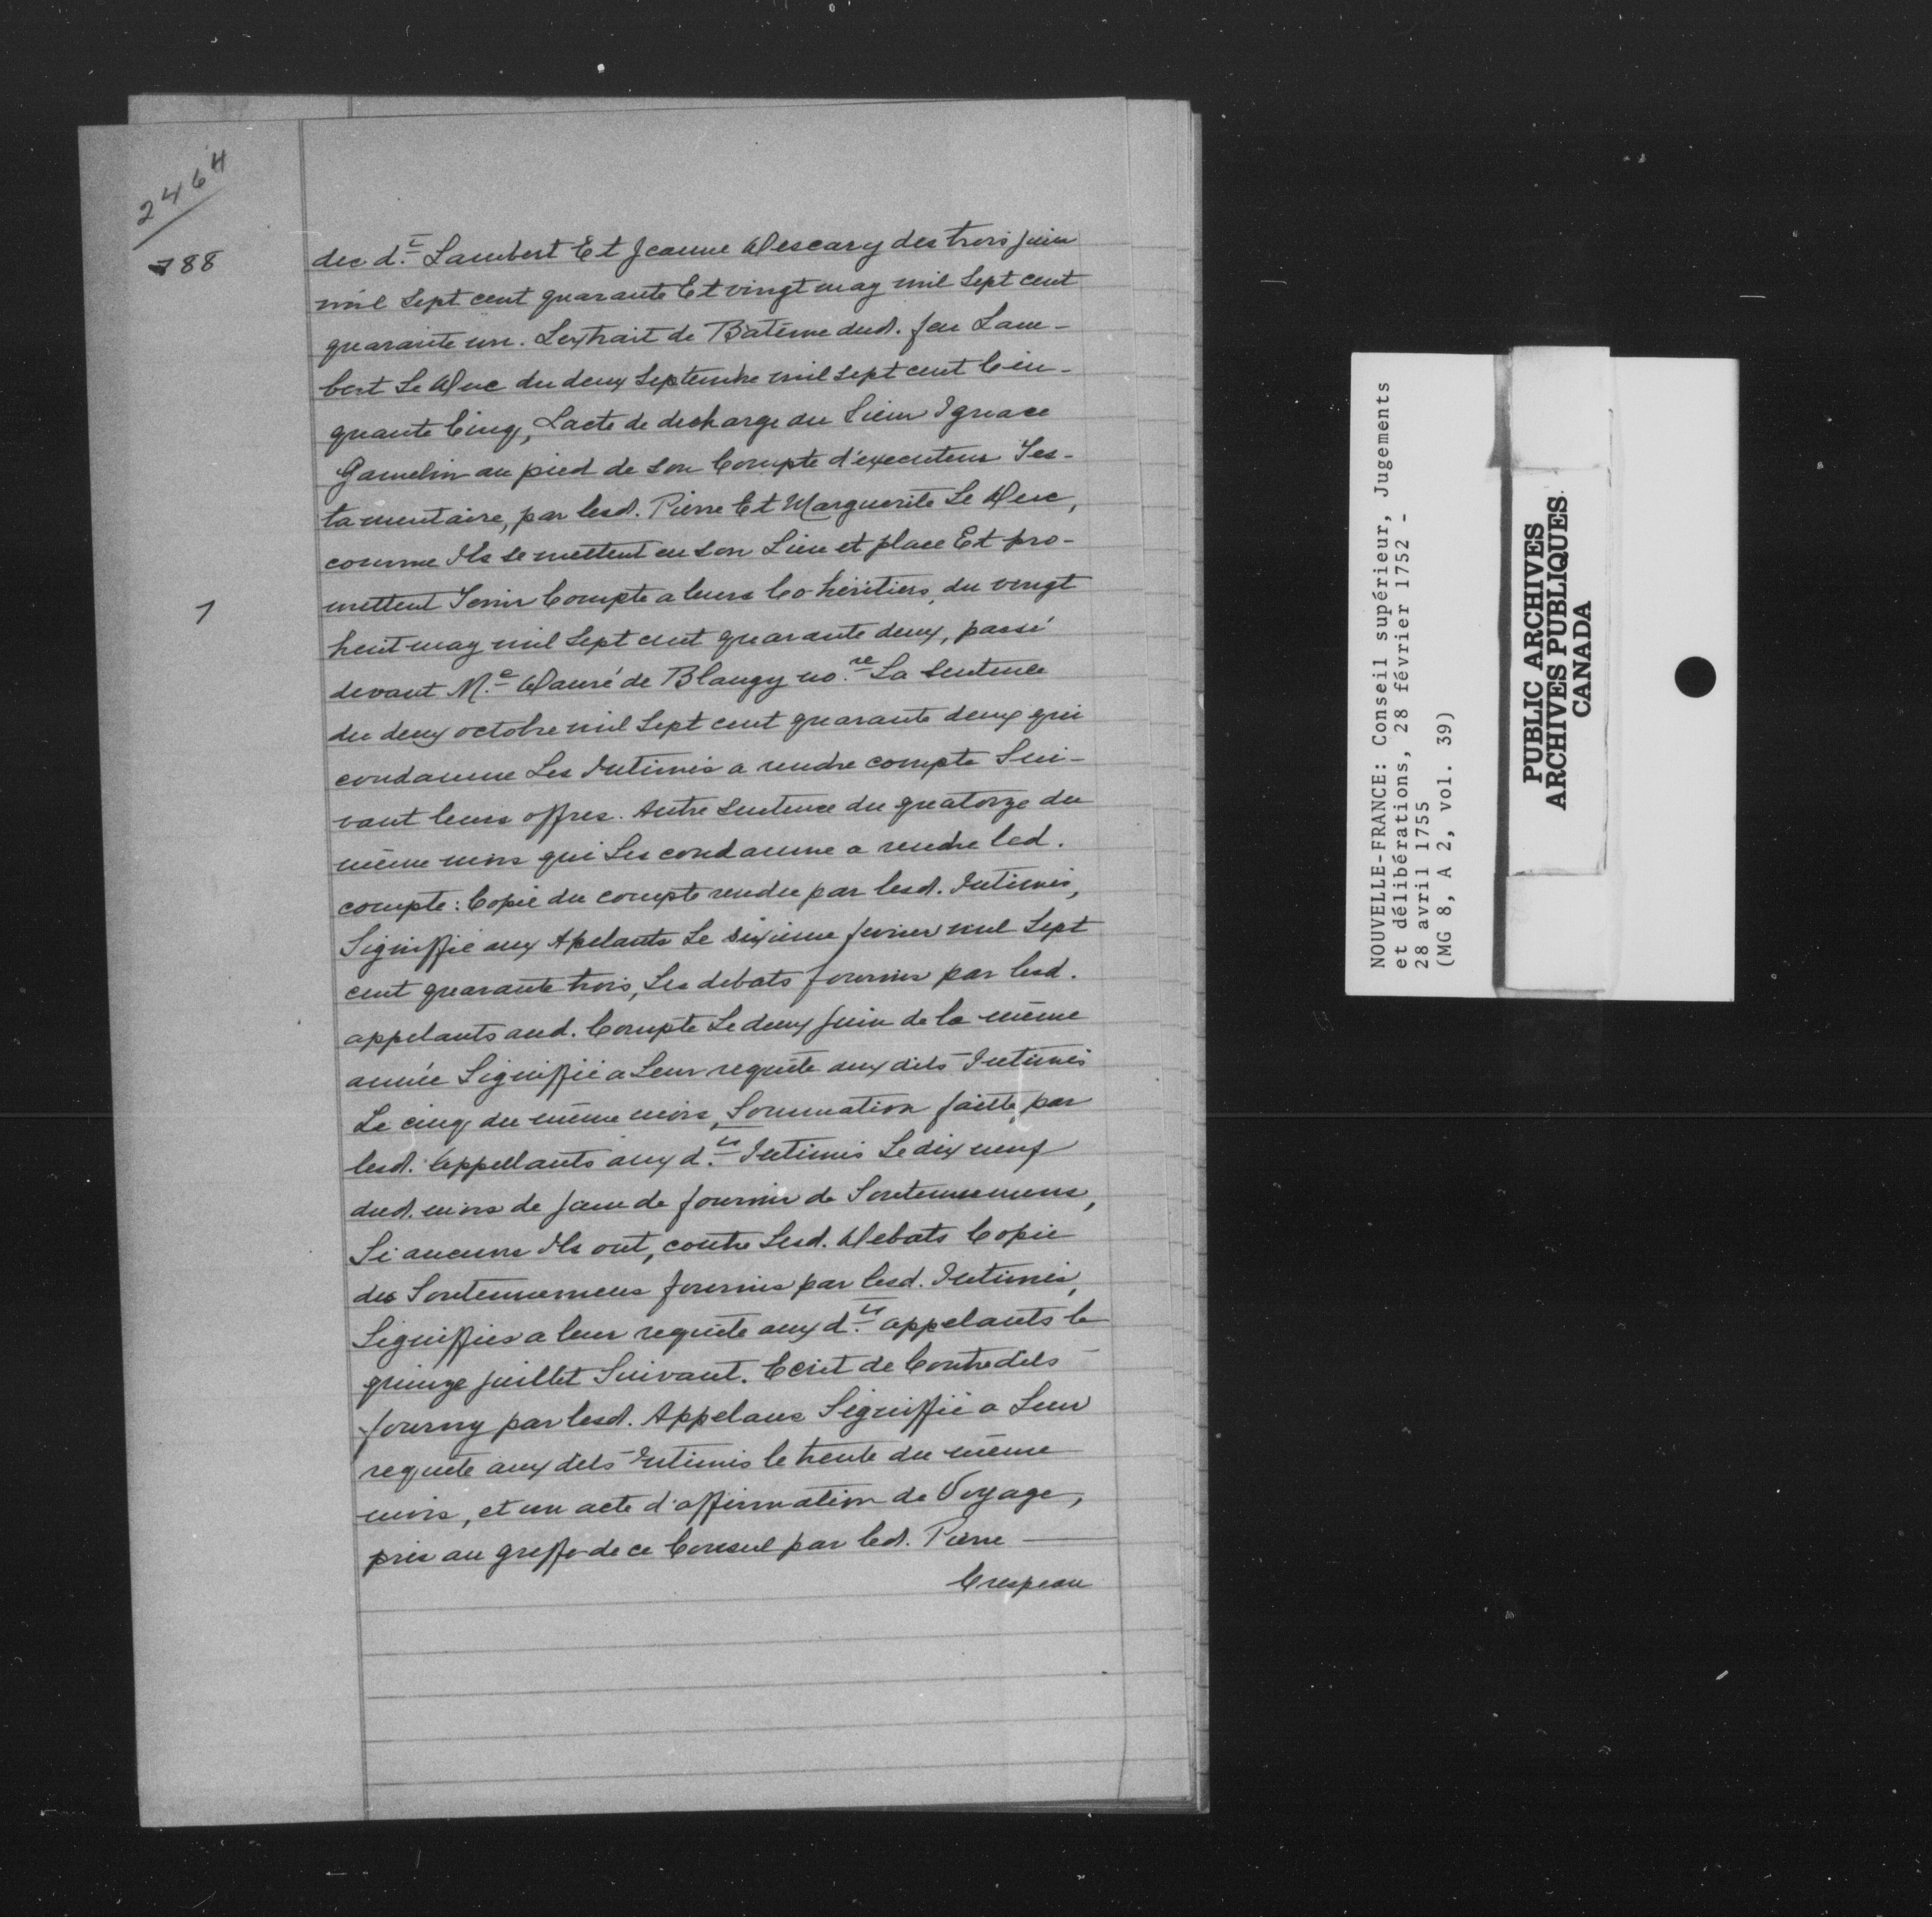 2464
788
des d.t Lambert Et Jeanne Descary des trois juin
mil Sept cent quarante Et vingt may mil Sept cent
quarante un. L'extrait de Batême dud. feu Lam-
bert Le Duc du deux Septembre mil sept cent Cin-
quante Cinq, L'acte de decharge du Sieur Ignace
Gamelin au pied de son Compte d'executeur Tes-
tamentaire, par lesd. Pierre Et Marguerite Le Duc,
comme Ils se mettent en son Lieu et place Et pro-
mettent Tenir Compte a leurs Co-héritiers, du vingt
1
huit may mil Sept cent quarante deux, passé
devant M.e Dauré de Blangy no.re La Sentence
du deux octobre mil Sept cent quarante deux qui
condamne Les Intimés a rendre compte Sui-
vant leurs offres. Autre Sentence du quatorze du
même mois qui Les condamne a rendre led.
compte: Copie du compte rendu par lesd. Intimés,
Signiffié aux Apelants Le sixieme fevrier mil Sept
cent quarante trois, Les debats fournis par lesd.
appelants aud. Compte Le deux juin de la même
année Signiffié a Leur requête aux dits Intimés
Le cinq du même mois, Sommation faitte par
lesd. Appellants aux d.ts Intimés Le dix neuf
dud. mois de juin de fournir de Soutennemens,
Si aucuns Ils ont, contre Lesd. Debats Copie
des Soutennemens fournis par lesd. Intimés,
Signiffiés a leur requête aux d.ts appelants le
quinze juillet Suivant. Ecrit de Contredits
fourny par lesd. Appelans Signiffié a Leur
requête aux dits Intimés le trente du même
mois, et un acte d'affirmation de Voyage,
pris au greffe de ce Conseil par led. Pierre
Crespeau
NOUVELLE-FRANCE: Conseil supérieur, Jugements
et délibérations, 28 février 1752 -
28 avril 1755
(MG 8, A 2, vol. 39)
PUBLIC ARCHIVES
ARCHIVES PUBLIQUES
CANADA